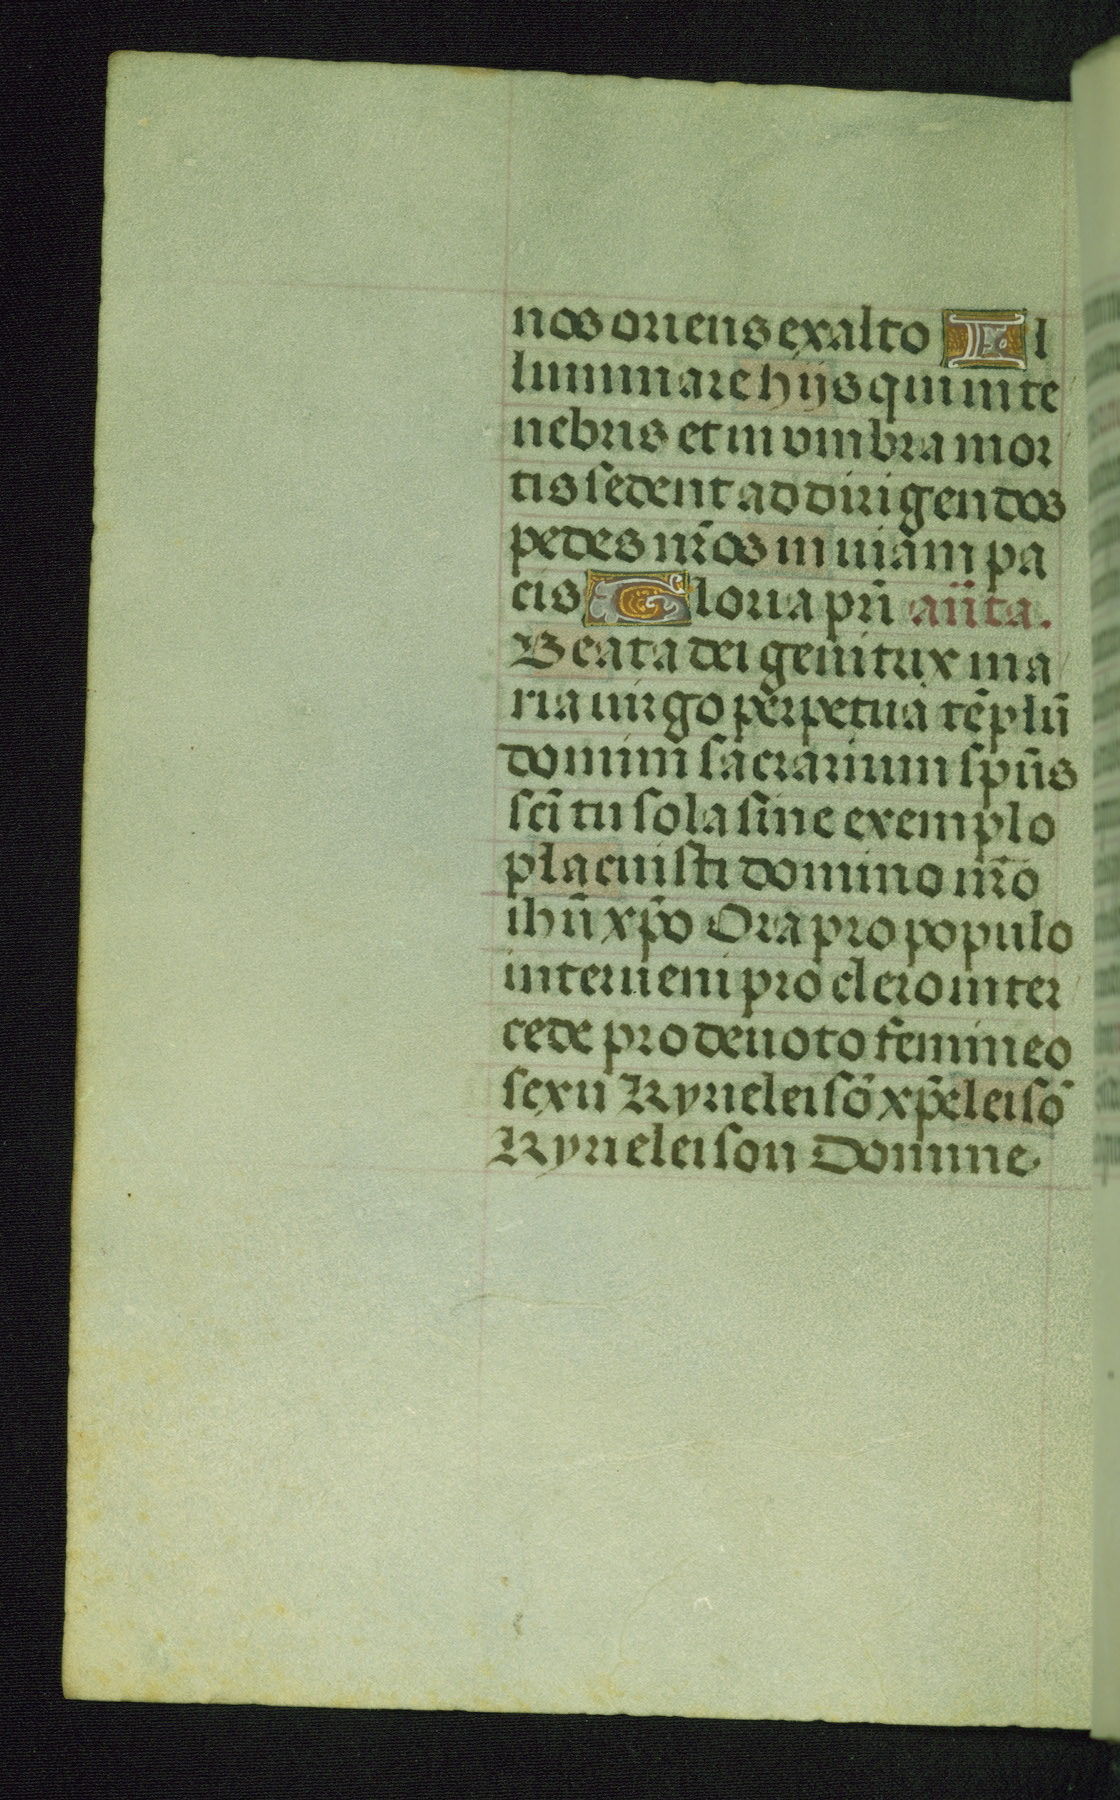 nos oriens ex alto Il
luminare hijs qui in te
nebris et in vmbra mor
tis sedent ad dirigendos
pedes nr̄os in uiam pa
cis Gloria pr̄i an̄ta.
Beata dei genitrix ma
ria uirgo perpetua tēplū
domini sacrarium sp̄us
sc̄i tu sola sine exemplo
placuisti domino nr̄o
ihū xp̄o Ora pro populo
interueni pro clero inter
cede pro deuoto femineo
sexu Kyrieleisō xp̄eleisō
Kyrieleison Domine